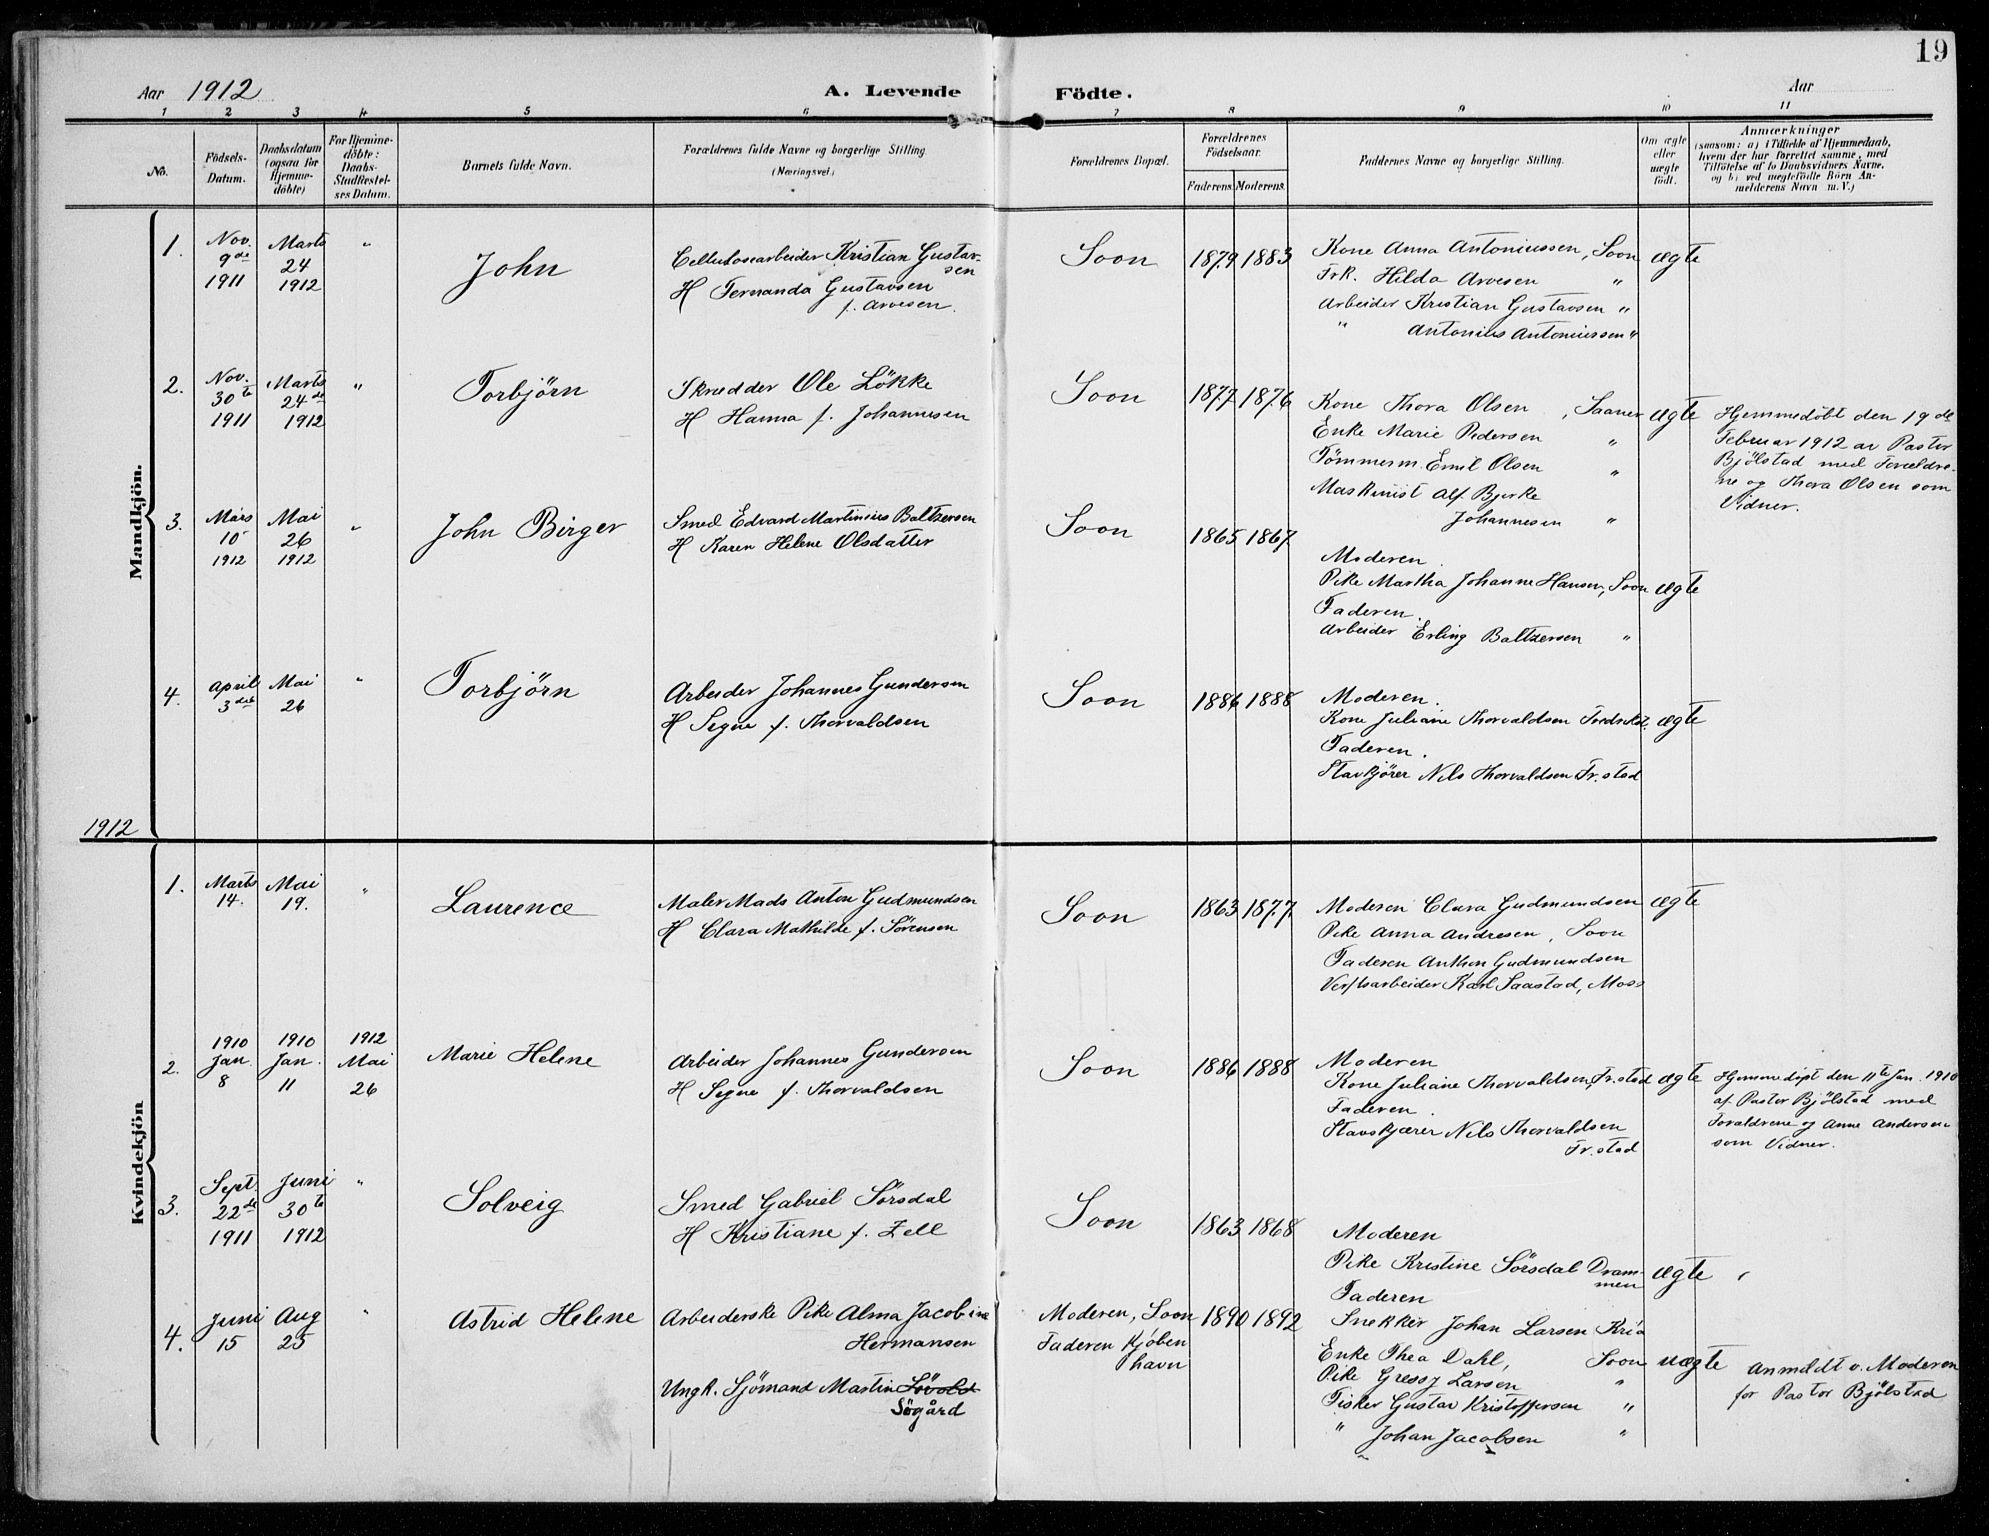 19
Aar 1912 A. Levende Fødte. Aar
1 2 3 4 5 6 7 8 9 10 11
No.
Födsels-
Datum.
Daabsdatum
(ogsaa for
Hjemme-
döbte)
For Hjemme-
döbte:
Daabs-
Stadfæstel-
ses Datum.
Barnets fulde Navn.
Forældrenes fulde Navne og borgerlige Stilling.
(Næringsvei.)
Forældrenes Bopæl.
Forældrenes
Födselsaar.
Faderens. Moderens.
Faddernes Navne og borgerlige Stilling.
Om ægte
eller
uægte
födt.
Anmærkninger
(saasom: a) i Tilfælde af Hjemmedaab,
hvem der har forrettet samme, med
Tilföielse af to Daabsvidners Navne.
og b) ved uægtefödte Börn An-
melderens Navn m. V.)
Mandkjön.
1.
Nov.
9de
1911
Marts
24
1912
"
John
Cellulosearbeider Kristian Gustav-
sen
H Fernanda Gustavsen
f. Arvesen.
Soon
1879 1883
Kone Anna Antoniussen, Soon
Frk. Hilda Arvesen "
Arbeider Kristian Gustavsen "
" Antonius Antoniussen "
ægte
2.
Nov.
30te
1911
Marts
24de
1912
"
Torbjörn
Skrædder Ole Lökke
H Hanna f. Johannesen
Soon
1877 1876
Kone Thora Olsen, Saaner
Enke Marie Pedersen "
Tömmerm. Emil Olsen "
Maskinist Alf Bjerke
Johannesen "
ægte
Hjemmedöbt den 19de
Februar 1912 av Pastor
Bjölstad med Forældre-
ne og Thora Olsen som
Vidner.
3.
Mars
10
1912
Mai
26
1912
"
John Birger
Smed Edvard Martinius Baltzersen
H Karen Helene Olsdatter
Soon
1865 1867
Moderen.
Pike Martha Johanne Hansen, Soon
Faderen.
Arbeider Erling Baltzersen "
ægte
4.
April
3die
Mai
26
"
Torbjörn
Arbeider Johannes Gundersen
H Segne f. Thorvaldsen
Soon
1886 1888
Moderen.
Kone Juliane Thorvaldsen Fredrikst.
Faderen.
Stavkjörer Nils Thorvaldsen Fr.stad
ægte
1912
Kvindekjön
1.
Marts
14.
Mai
19.
"
Laurence
Maler Mads Anton Gudmundsen
H Clara Mathilde f. Sörensen
Soon
1863 1877.
Moderen Clara Gudmundsen
Pike Anna Andresen, Soon
Faderen Anthon Gudmundsen
Verftsarbeider Karl Saastad, Moss
ægte
2.
1910
Jan
8
1910
Jan.
11
1912
Mai
26
Marie Helene
Arbeider Johannes Gundersen
H Segne f. Thorvaldsen
Soon
1886 1888
Moderen
Kone Juliane Thorvaldsen, Fr.stad
Faderen.
Stavskjærer Nils Thorvaldsen
Fr.stad
ægte
Hjemmedöpt den 11te Jan. 1910
af Pastor Bjölstad med
Forældrene og Anne Andersen
som Vidner.
3.
Sept
22de
1911
Juni
30te
1912
"
Solveig
Smed Gabriel Sörsdal
H Kristiane f. Zell
Soon
1863 1868
Moderen
Pike Kristine Sörsdal Dram-
men
Faderen
Snekker Johan Larsen Kria
ægte
4.
Juni
15
Aug
25
"
Astrid Helene
Arbeiderske Pike Alma Jacobine
Hermansen
Ungk. Sjömand Martin Sövold
Sögård
Moderen, Soon
Faderen Kjöben
havn
1890 1892
Enke Thea Dahl, Soon
Pike Gressy Larsen "
Fisker Gustav Kristoffersen "
" Johan Jacobsen "
uægte
Anmeldt v. Moderen
for Pastor Bjölstad